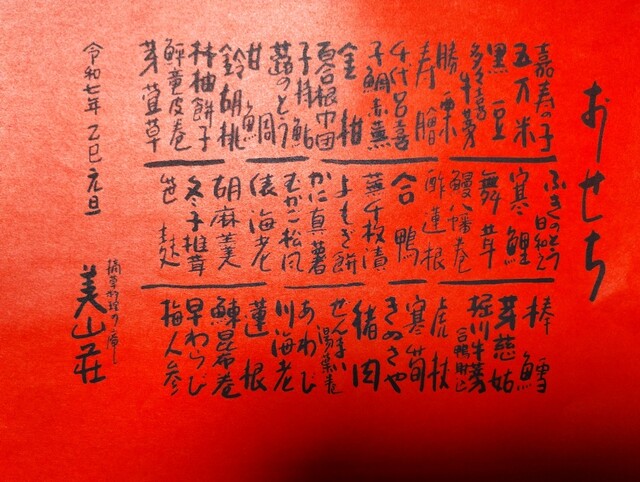 おせち
嘉寿の子
五万米
黒豆
多々喜牛蒡
勝栗
寿膾
千代呂喜
子鯛赤蕪
金柑
百合根巾団
子持鮎
蕗のとう
甘鯛
鈴胡桃
柚餅子
竜皮巻
芽萱草
ふきのとう
寒鯉
舞茸
鰻八幡巻
酢蓮根
合鴨
蕪千枚漬
よもぎ餅
かに真薯
むかご松風
俵海老
胡麻
冬子椎茸
笹麩
棒鱈
芽慈姑
堀川牛蒡
合鴨射込
虎杖
寒筍
きぬさや
猪肉
ぜんまい
湯葉煮
あわび
川海老
蓮根
鰊昆布巻
早わらび
梅人参
令和七年 乙巳 元旦
摘草料理の
美山荘